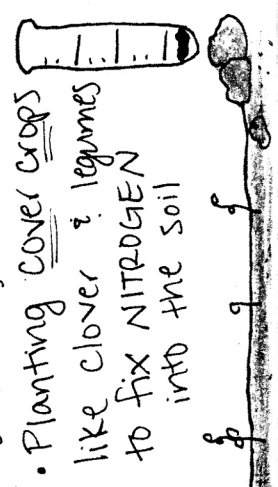 • Planting cover crops
like clover & legumes
to fix NITROGEN
into the soil